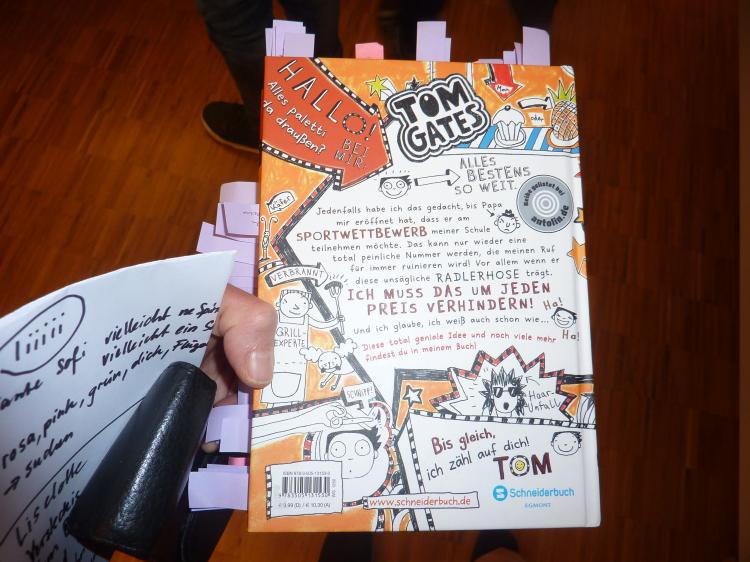 HALLO!
Alles paletti
da draußen?
BEI
MIR.
TOM
GATES
Hm
oder
ALLES
BESTENS
SO WEIT.
Käfer
Jedenfalls habe ich das gedacht, bis Papa
mir eröffnet hat, dass er am
SPORTWETTBEWERB meiner Schule
teilnehmen möchte. Das kann nur wieder eine
total peinliche Nummer werden, die meinen Ruf
für immer ruinieren wird! Vor allem wenn er
diese unsägliche RADLERHOSE trägt.
ICH MUSS DAS UM JEDEN
PREIS VERHINDERN!
Und ich glaube, ich weiß auch schon wie...
Diese total geniale Idee und noch viele mehr
findest du in meinem Buch!
Ha!
Ha!
antolin.de
VERBRANNT
GRILL-
EXPERTE
SCHNIPP!
Haar-
Unfall
Bis gleich,
ich zähl auf dich!
TOM
www.schneiderbuch.de
Schneiderbuch
EGMONT
€ 9,99 (D) / € 10,30 (A)
vielleicht
Sofi vielleicht ein
rosa, pink, grün, dick,
→ suchen